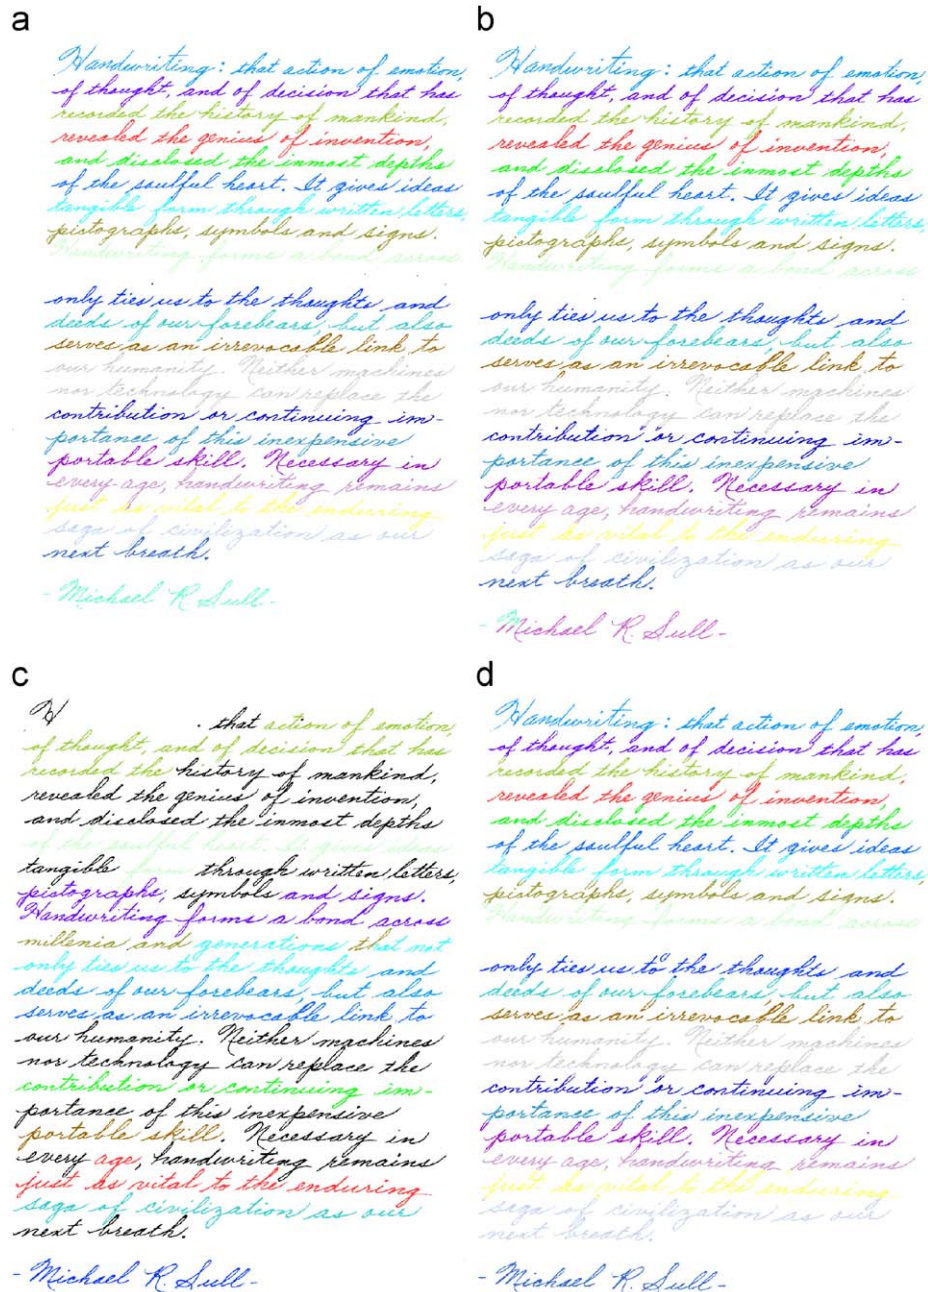 a
Handwriting: that action of emotion,
of thought, and of decision that has
recorded the history of mankind,
revealed the genius of invention,
and disclosed the inmost depths
of the soulful heart. It gives ideas
tangible form through written letters,
pictographs, symbols and signs.
Handwriting forms a bond across
only ties us to the thoughts and
deeds of our forebears, but also
serves as an irrevocable link to
our humanity. Neither machines
nor technology can replace the
contribution or continuing im-
portance of this inexpensive
portable skill. Necessary in
every age, handwriting remains
just as vital to the enduring
saga of civilization as our
next breath.
- Michael R. Sull -
b
Handwriting: that action of emotion,
of thought, and of decision that has
recorded the history of mankind,
revealed the genius of invention,
and disclosed the inmost depths
of the soulful heart. It gives ideas
tangible form through written letters,
pictographs, symbols and signs.
Handwriting forms a bond across
only ties us to the thoughts and
deeds of our forebears, but also
serves as an irrevocable link to
our humanity. Neither machines
nor technology can replace the
contribution or continuing im-
portance of this inexpensive
portable skill. Necessary in
every age, handwriting remains
just as vital to the enduring
saga of civilization as our
next breath.
- Michael R. Sull -
c
H . that action of emotion,
of thought, and of decision that has
recorded the history of mankind,
revealed the genius of invention,
and disclosed the inmost depths
of the soulful heart. It gives ideas
tangible form through written letters,
pictographs, symbols and signs.
Handwriting forms a bond across
millenia and generations that not
only ties us to the thoughts and
deeds of our forebears, but also
serves as an irrevocable link to
our humanity. Neither machines
nor technology can replace the
contribution or continuing im-
portance of this inexpensive
portable skill. Necessary in
every age, handwriting remains
just as vital to the enduring
saga of civilization as our
next breath.
- Michael R. Sull -
d
Handwriting: that action of emotion,
of thought, and of decision that has
recorded the history of mankind,
revealed the genius of invention,
and disclosed the inmost depths
of the soulful heart. It gives ideas
tangible form through written letters,
pictographs, symbols and signs.
Handwriting forms a bond across
only ties us to the thoughts and
deeds of our forebears, but also
serves as an irrevocable link to
our humanity. Neither machines
nor technology can replace the
contribution or continuing im-
portance of this inexpensive
portable skill. Necessary in
every age, handwriting remains
just as vital to the enduring
saga of civilization as our
next breath.
- Michael R. Sull -